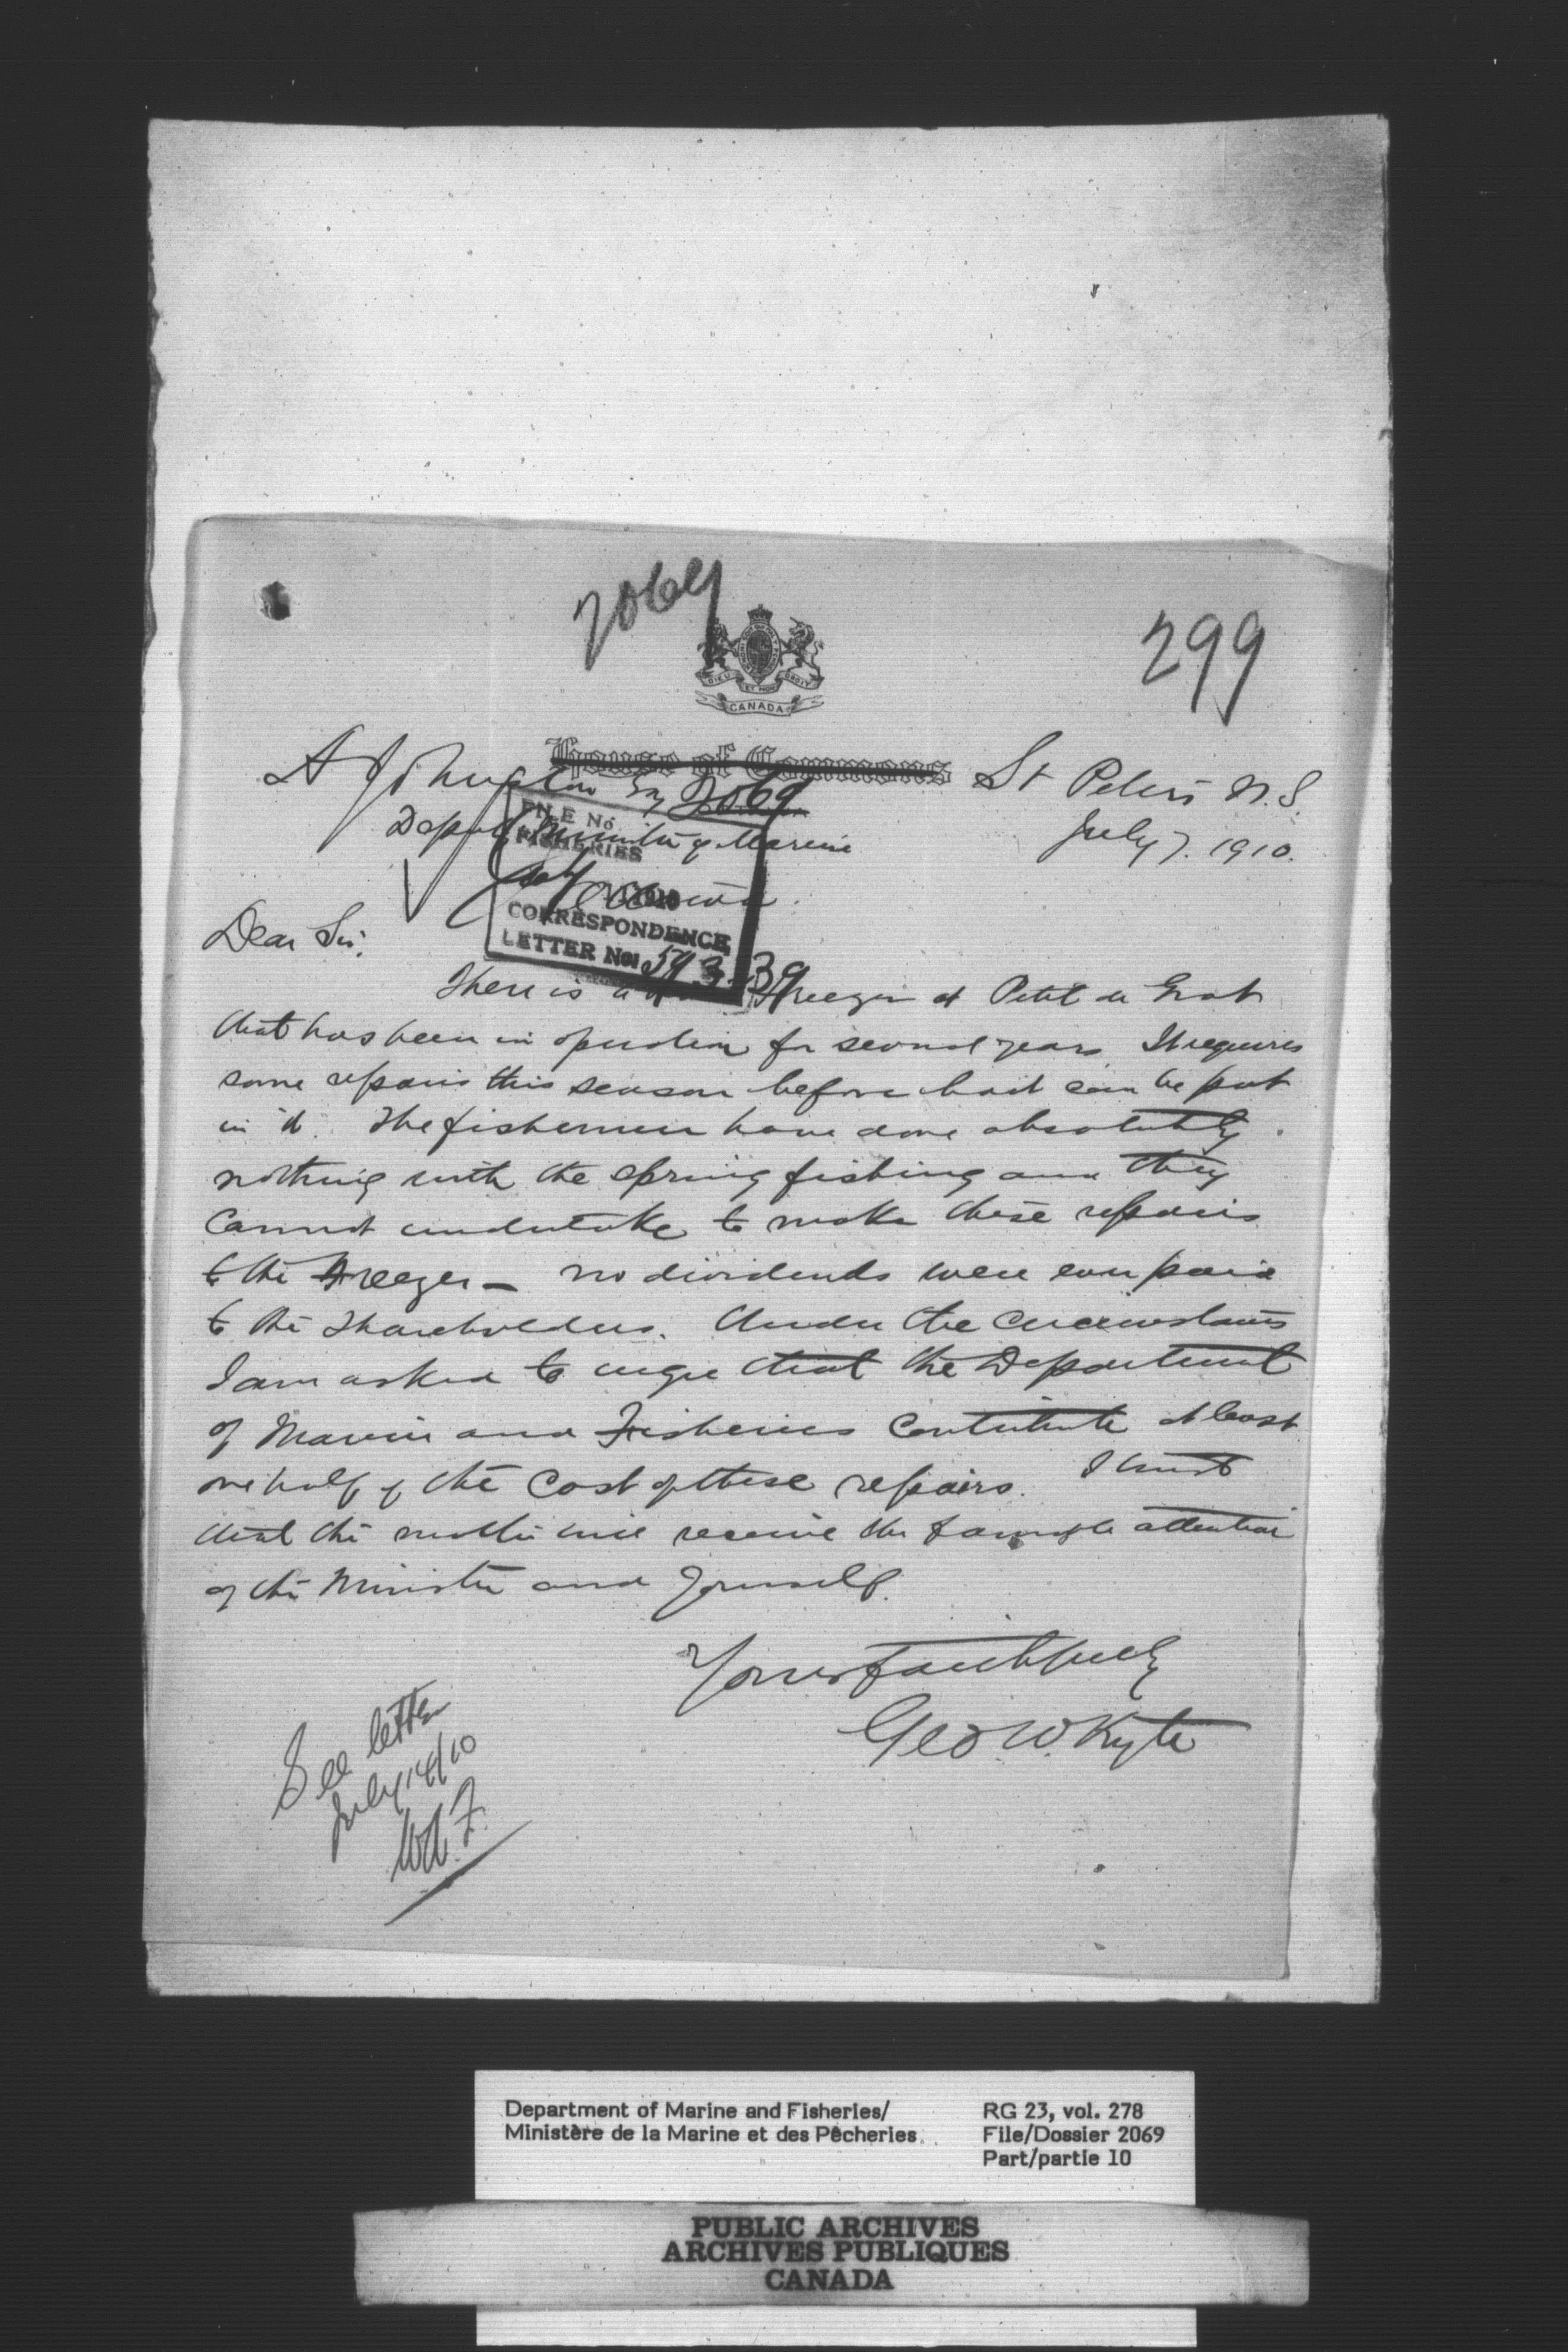 2069
299
DIEU ET MON DROIT
CANADA
House of Commons
St Peters N.S.
July 7. 1910.
A Johnston Esq 2069
Deputy Minister of Marine
Ottawa.
FILE No.
FISHERIES
1910
CORRESPONDENCE
LETTER No. 59339
Dear Sir,
There is a Freezer at Petit de Grat
that has been in operation for several years. It requires
some repairs this season before bait can be put
in it. The fishermen have done absolutely
nothing with the spring fishing and they
cannot undertake to make these repairs
to the Freezer — no dividends were ever paid
to the Shareholders. Under the circumstances
I am asked to urge that the Department
of Marine and Fisheries contribute at least
one half of the cost of these repairs. I trust
that the matter will receive the favorable attention
of the Minister and yourself.
Yours faithfully
Geo. W. Kyte
See letter
July 14/10
Department of Marine and Fisheries/
Ministère de la Marine et des Pêcheries
RG 23, vol. 278
File/Dossier 2069
Part/partie 10
PUBLIC ARCHIVES
ARCHIVES PUBLIQUES
CANADA